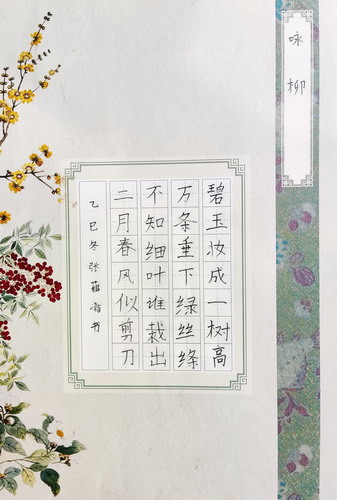 咏柳
碧玉妆成一树高
万条垂下绿丝绦
不知细叶谁裁出
二月春风似剪刀
乙巳冬张蕴茹书